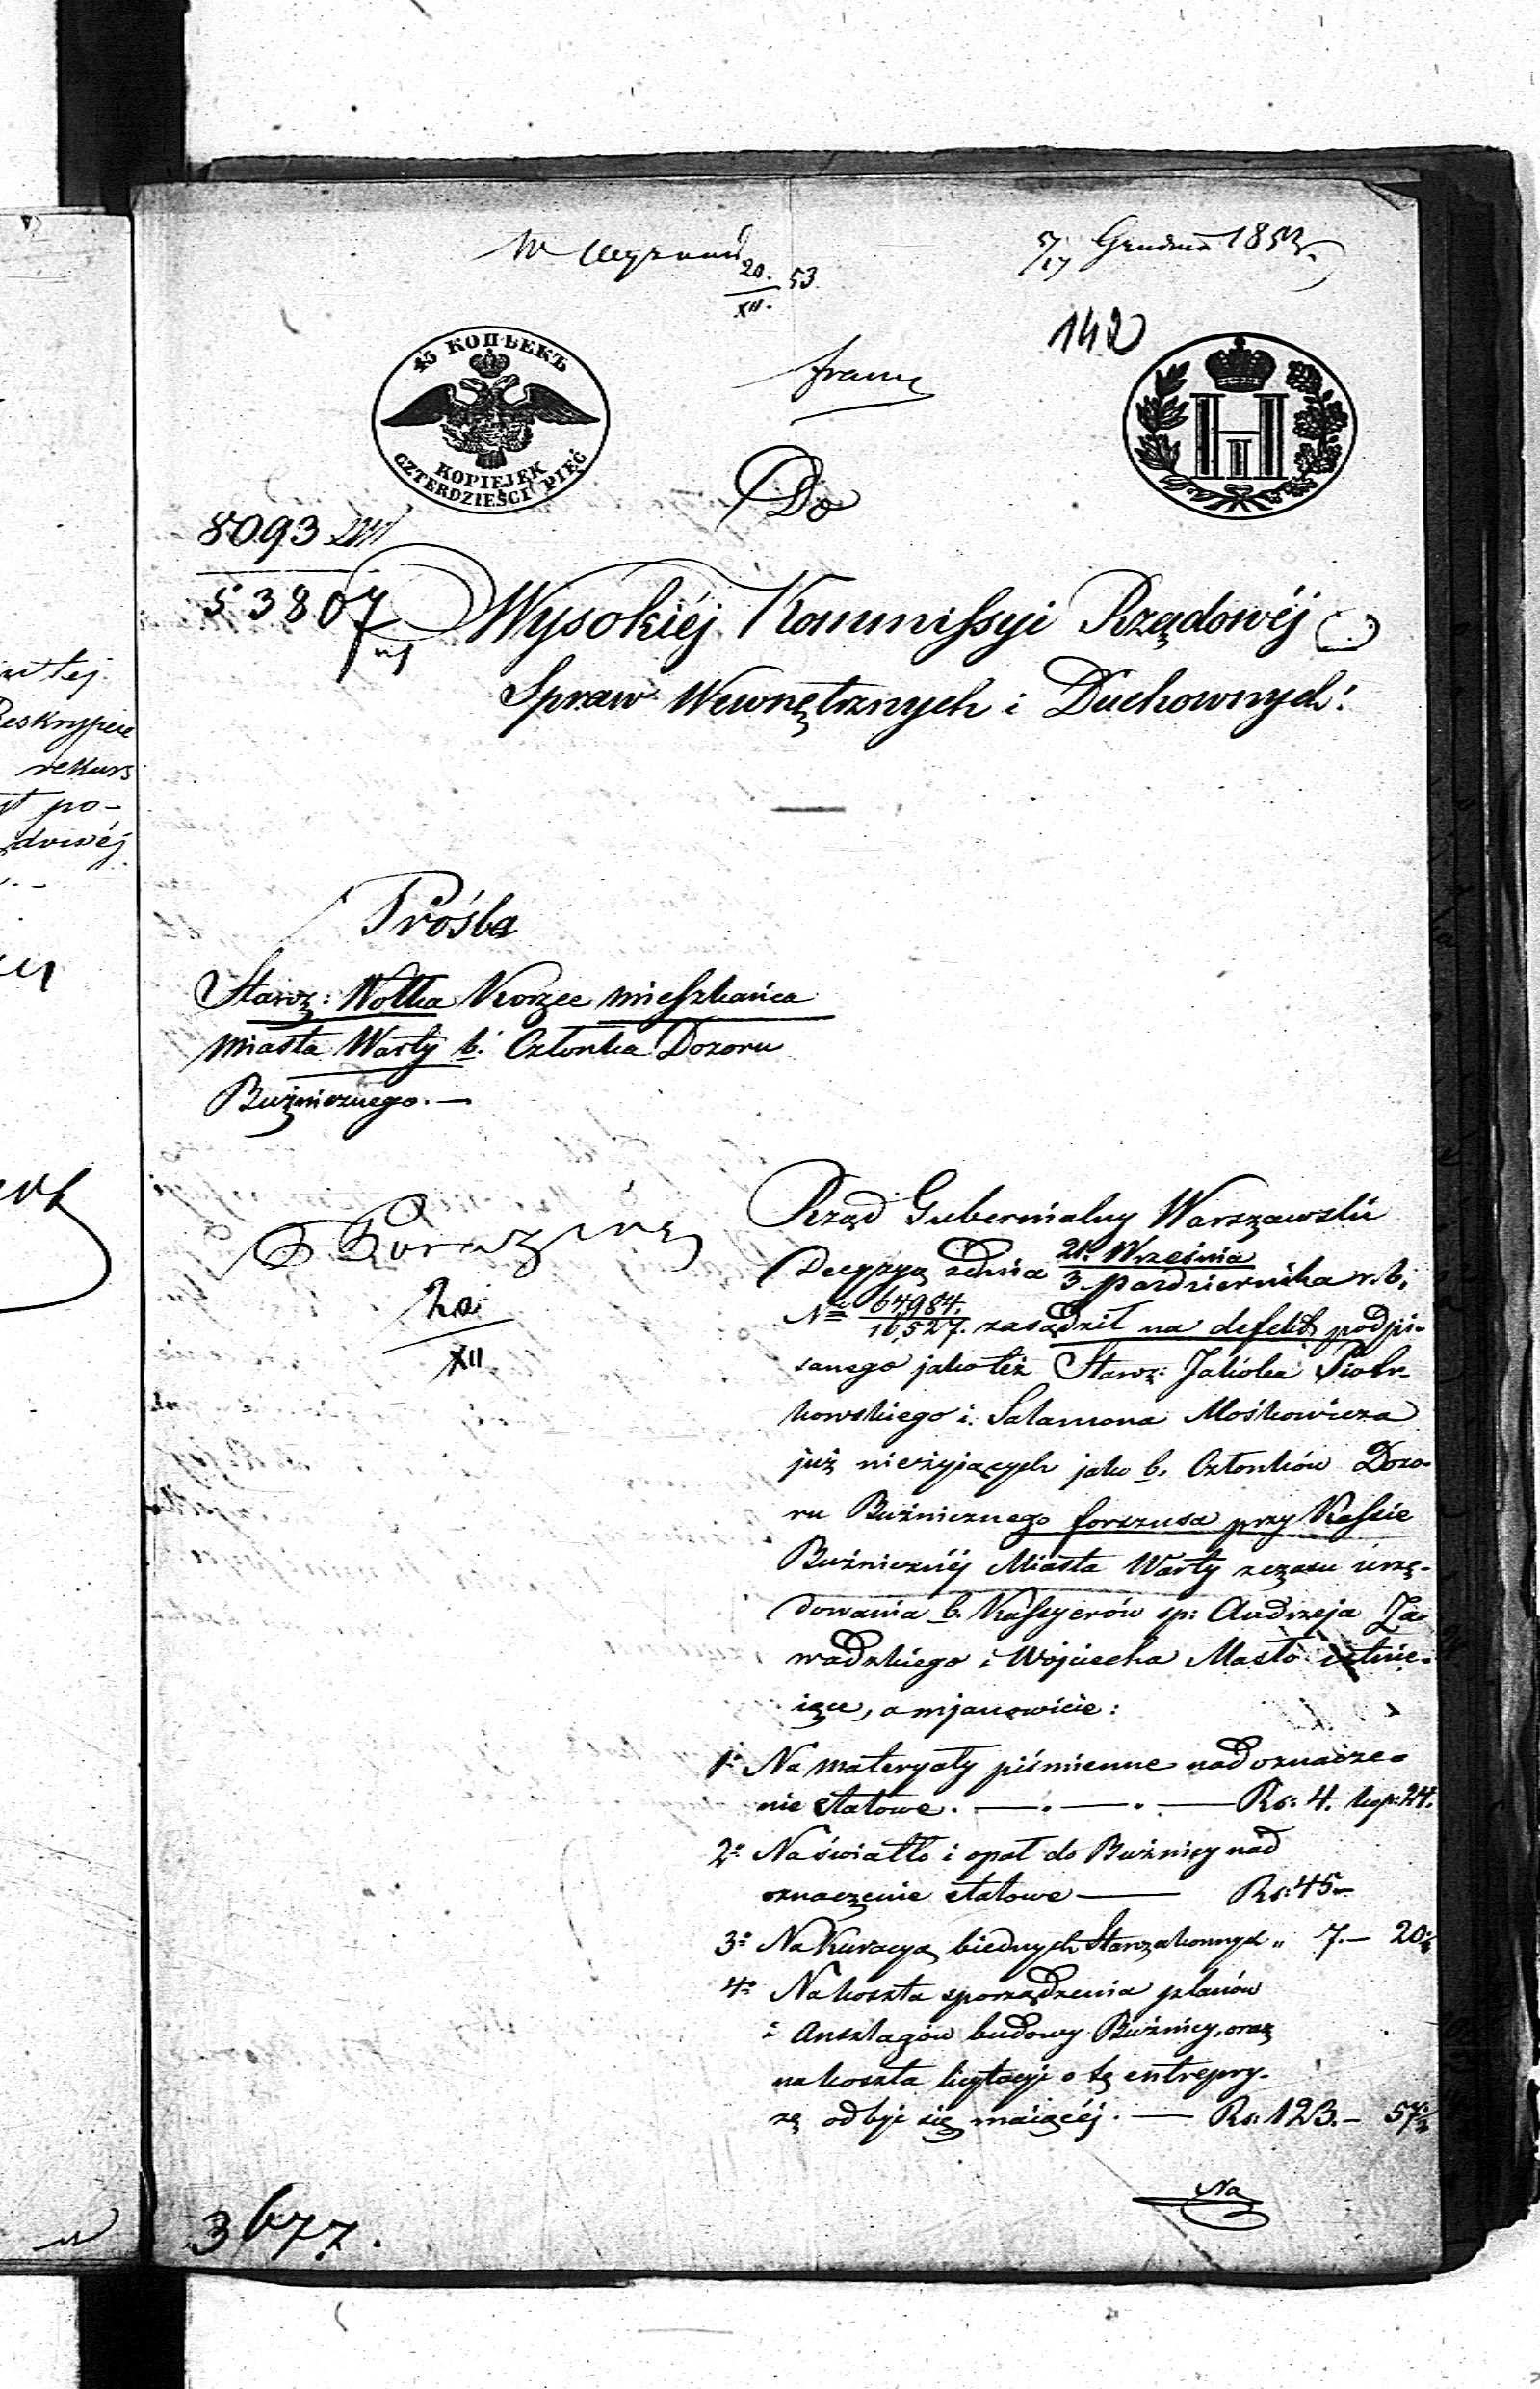 5/17 Grudnia 1853
20. 53
XII.
142
45 КОПѢЕКЪ
KOPIEJEK
CZTERDZIEŚCI PIĘĆ
franc
Do
8093
53807
Wysokiéj Kommissyi Rządowéj
Spraw Wewnętrznych i Duchownych:
Prośba
Starz: Wolka Korzec mieszkańca
miasta Warty b. Członka Dozoru
Bużnicznego.—
20
XII
Rząd Gubernialny Warszawski
Decyzyą zdnia 21. Września / 3. Października r. b.
No 64,984. / 16,527. zasądził na defekt podpi-
sanego jakoteż Starz: Jakóba Piotr-
kowskiego i Salamona Mośkowicza
już nieżyjących jako b. Członków Dozo-
ru Bużnicznego forszusa przy Kassie
Bużnicznéj Miasta Warty zczasu urzę-
dowania b. Kassyerów sp: Andrzeja Za-
wadzkiego i Wojciecha Masło istnie-
iące, a mjanowicie:
1o Na materyały piśmienne nad oznacze-
nie etatowe. —.—.— Rs: 4. kop: 24.
2o Na światło i opał do Bużnicy nad
oznaczenie etatowe — Rs: 45—
3o Na Kuracyą biednych Starzakonnych „ 7.— 20.
4o Na koszta sporządzenia planów
i Anszlagów budowy Bużnicy, oraz
na koszta licytacyi o tę entrepry-
zę odbyć się maiącéj. — Rs: 123.— 57
Na
3677.
intej
Reskrypcie
rekurs
st po-